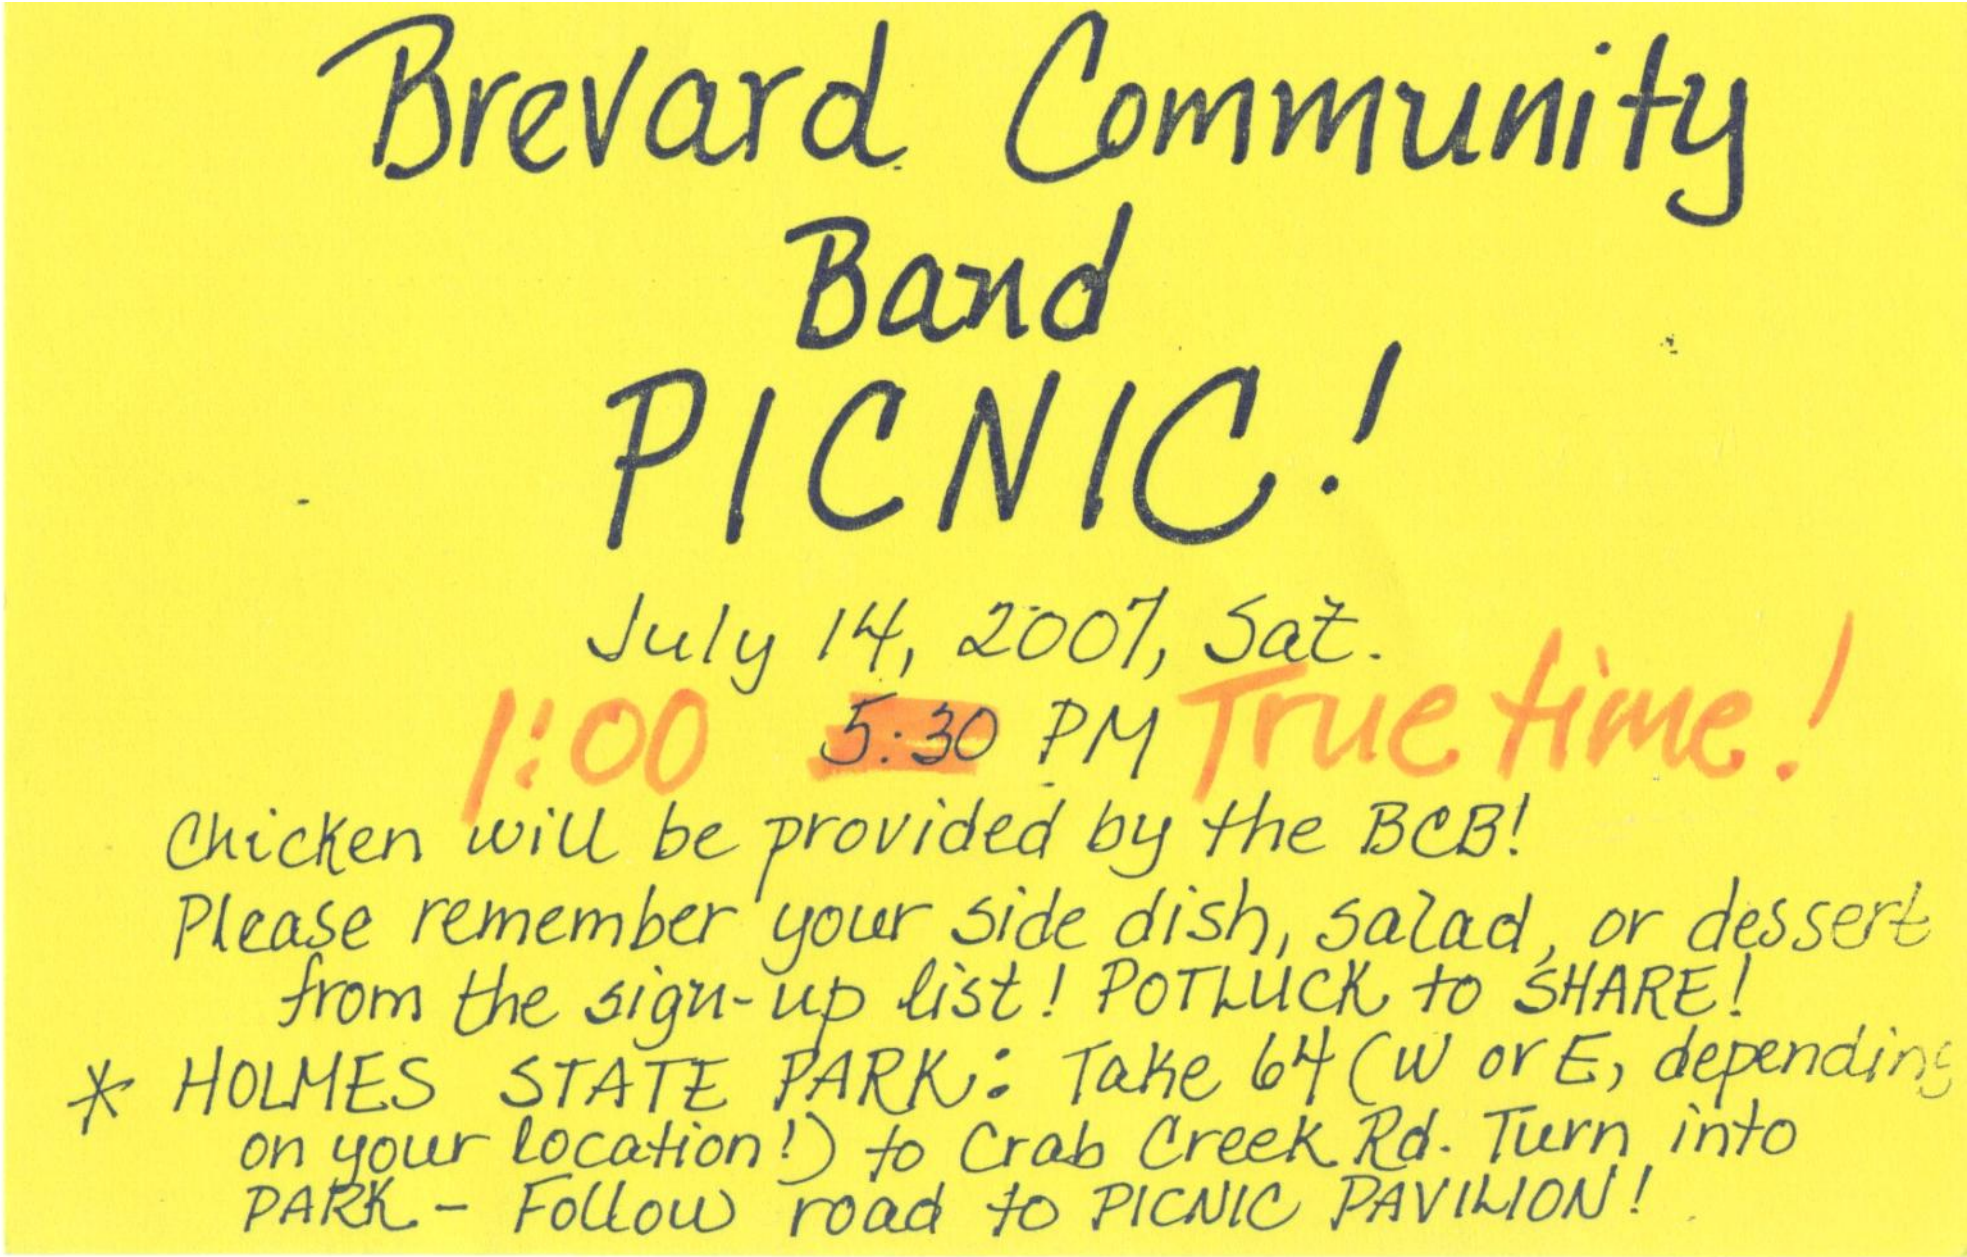 Brevard Community
Band
PICNIC!
July 14, 2007, Sat.
1:00 5:30 PM True time!
Chicken will be provided by the BCB!
Please remember your side dish, salad, or dessert
from the sign-up list! POTLUCK to SHARE!
* HOLMES STATE PARK: Take 64 (W or E, depending
on your location!) to Crab Creek Rd. Turn into
PARK - Follow road to PICNIC PAVILION!